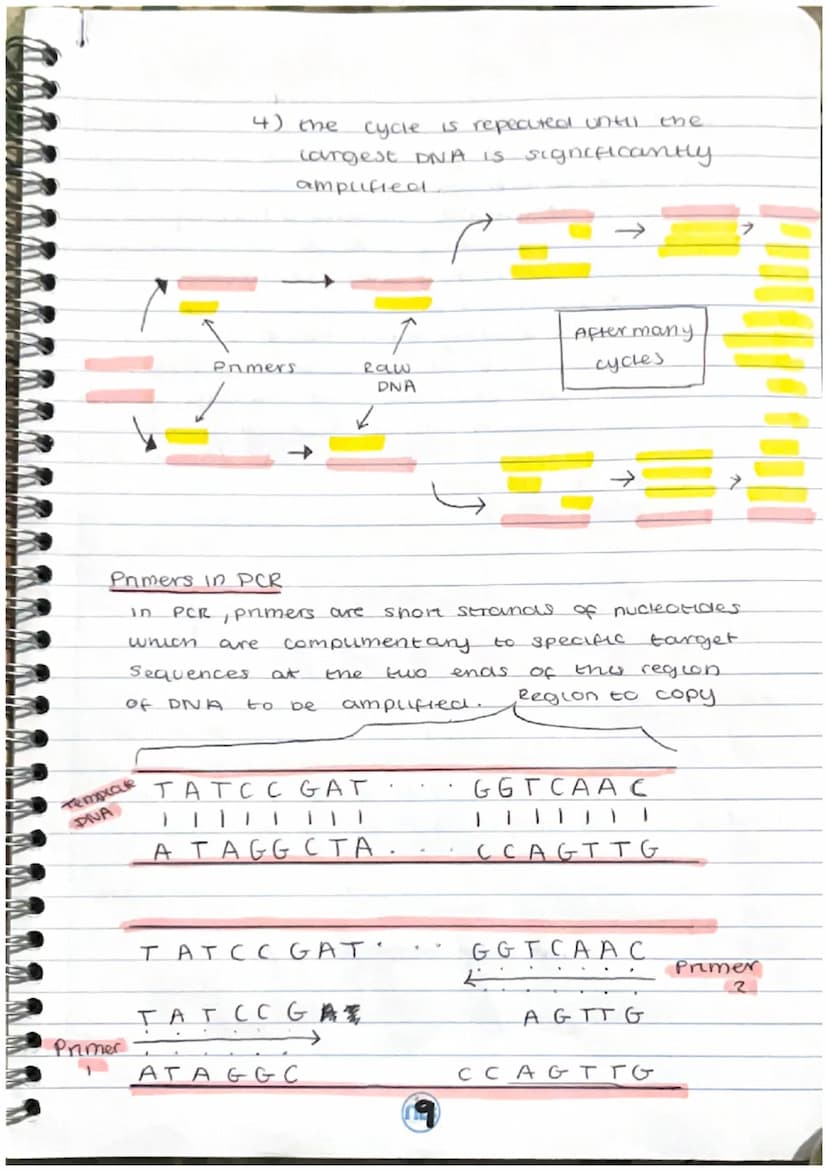 4) the cycle is repeated until the
largest DNA is significantly
amplified.
After many
cycles
Primers
Raw
DNA
Primers in PCR
In PCR, primers are short strands of nucleotides
which are complimentary to specific target
sequences at the two ends of this region
of DNA to be amplified. Region to copy
Template
DNA
T A T C C G A T . . . G G T C A A C
A T A G G C T A . . . C C A G T T G
T A T C C G A T . . . G G T C A A C
Primer
2
T A T C C G
A G T T G
Primer
1
A T A G G C
C C A G T T G
9